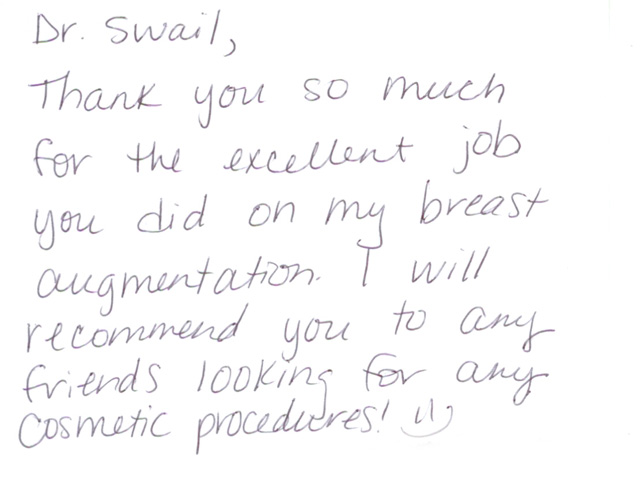 Dr. Swail,
Thank you so much
for the excellent job
you did on my breast
augmentation. I will
recommend you to any
friends looking for any
cosmetic procedures! :)